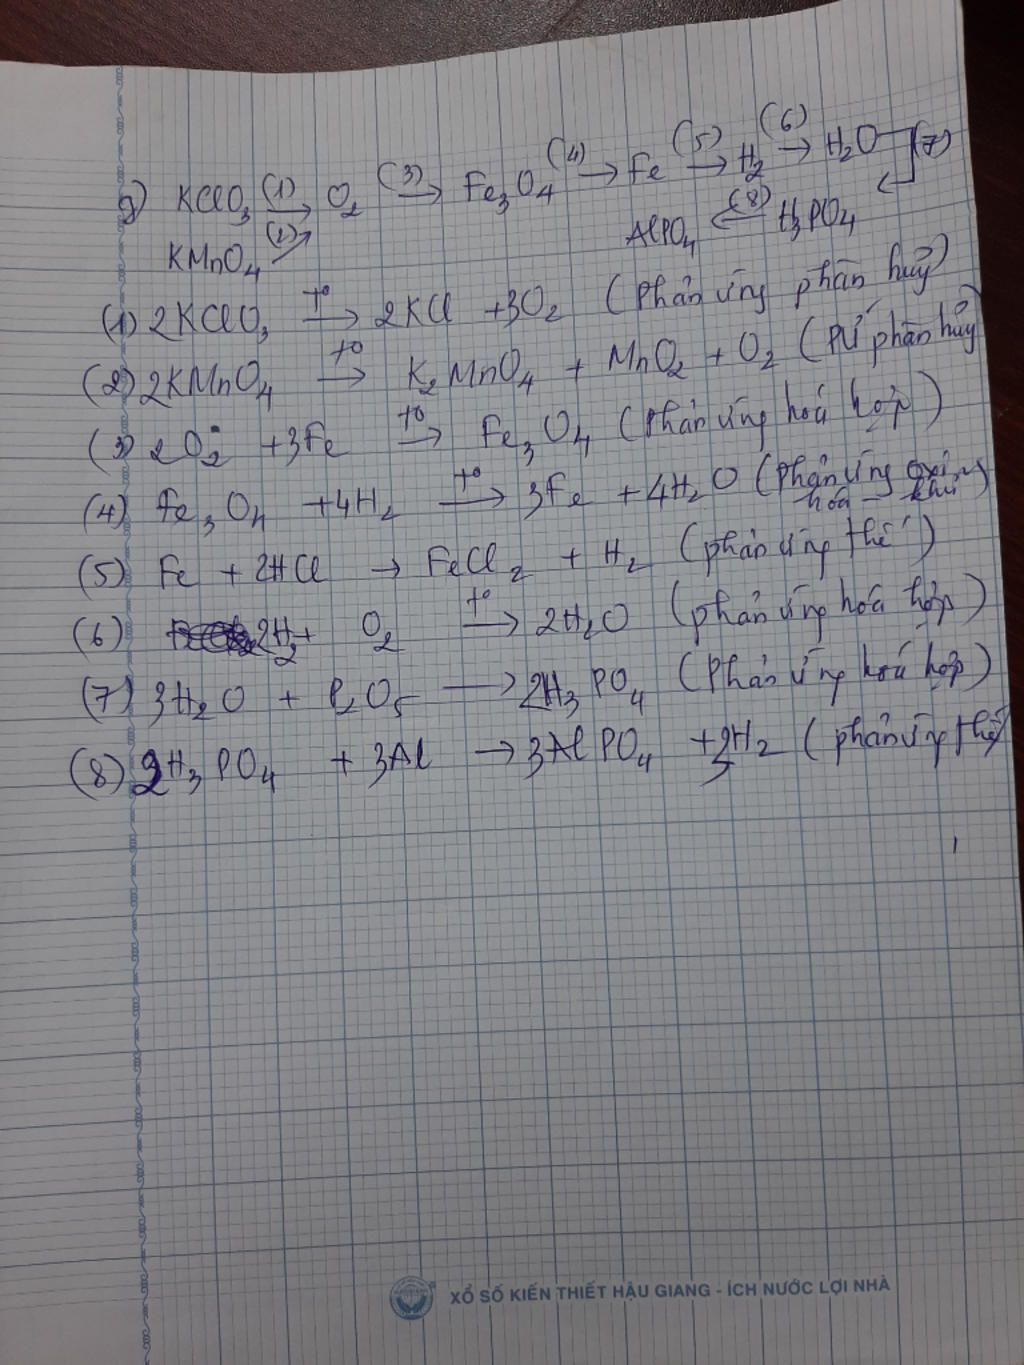 g) KClO3 (1)→ O2 (3)→ Fe3O4 (4)→ Fe (5)→ H2 (6)→ H2O (7)
KMnO4 (2)↗ AlPO4 ←(8) H3PO4
(1) 2KClO3 t°→ 2KCl + 3O2 (Phản ứng phân huỷ)
(2) 2KMnO4 t°→ K2MnO4 + MnO2 + O2 (PƯ phân hủy
(3) 2O2 + 3Fe t°→ Fe3O4 (Phản ứng hoá hợp)
(4) Fe3O4 + 4H2 t°→ 3Fe + 4H2O (Phản ứng oxi
hóa - khử)
(5) Fe + 2HCl → FeCl2 + H2 (phản ứng thế)
(6) 2H2 + O2 t°→ 2H2O (phản ứng hoá hợp)
(7) 3H2O + P2O5 → 2H3PO4 (Phản ứng hoá hợp)
(8) 2H3PO4 + 3Al → 3AlPO4 + 3H2 (phản ứng thế)
XỔ SỐ KIẾN THIẾT HẬU GIANG - ÍCH NƯỚC LỢI NHÀ